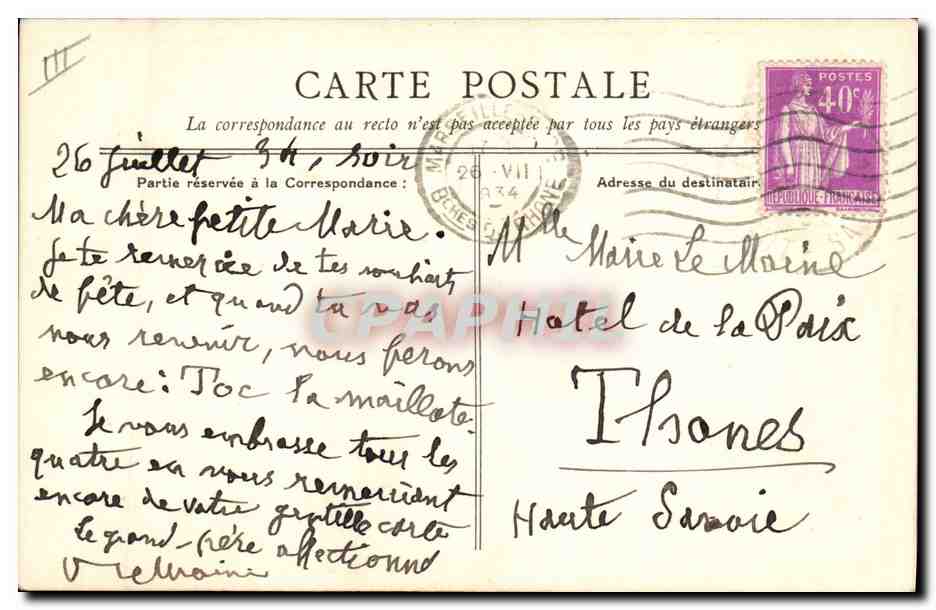 III
CARTE POSTALE
La correspondance au recto n'est pas acceptée par tous les pays étrangers
POSTES
40c
REPUBLIQUE-FRANÇAISE
26 -VII
1934
BCHES DU RHONE
26 juillet 34, soir
Partie réservée à la Correspondance :
Ma chère petite Marie.
Je te remercie de tes souhaits
de fête, et quand tu vas
nous revenir, nous ferons
encore : Toc la maillote.
Je vous embrasse tous les
quatre en vous remerciant
encore de votre gentille carte
Le grand-père affectionné
Adresse du destinatair
Mlle Marie Le Moine
Hotel de la Paix
Thones
Haute Savoie
CPAPHIL